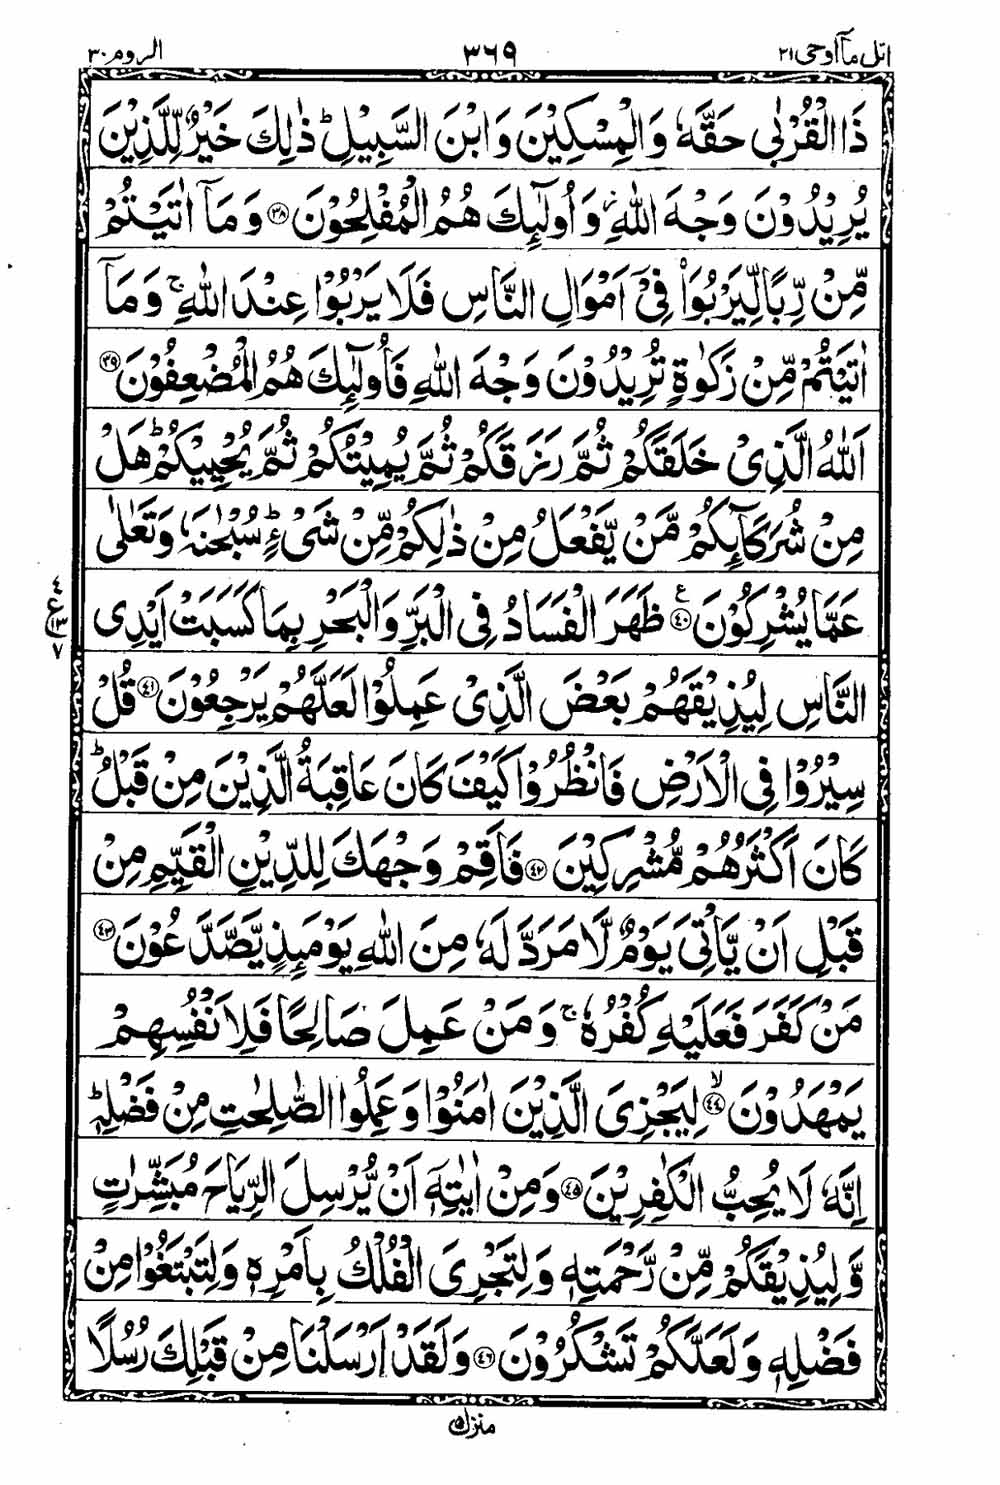 اتل مآ اوحی ۲۱
۳۶۹
الروم ۳۰
ذَا الْقُرْبٰى حَقَّهٗ وَالْمِسْكِيْنَ وَابْنَ السَّبِيْلِ ؕ ذٰلِكَ خَيْرٌ لِّلَّذِيْنَ
يُرِيْدُوْنَ وَجْهَ اللّٰهِ ؗ وَاُولٰٓئِكَ هُمُ الْمُفْلِحُوْنَ ﴿۳۸﴾ وَمَاۤ اٰتَيْتُمْ
مِّنْ رِّبًا لِّيَرْبُوَا۠ فِىْۤ اَمْوَالِ النَّاسِ فَلَا يَرْبُوْا عِنْدَ اللّٰهِ ۚ وَمَاۤ
اٰتَيْتُمْ مِّنْ زَكٰوةٍ تُرِيْدُوْنَ وَجْهَ اللّٰهِ فَاُولٰٓئِكَ هُمُ الْمُضْعِفُوْنَ ﴿۳۹﴾
اَللّٰهُ الَّذِىْ خَلَقَكُمْ ثُمَّ رَزَقَكُمْ ثُمَّ يُمِيْتُكُمْ ثُمَّ يُحْيِيْكُمْ ؕ هَلْ
مِنْ شُرَكَآئِكُمْ مَّنْ يَّفْعَلُ مِنْ ذٰلِكُمْ مِّنْ شَىْءٍ ؕ سُبْحٰنَهٗ وَتَعٰلٰى
عَمَّا يُشْرِكُوْنَ ﴿۴۰﴾ ع ظَهَرَ الْفَسَادُ فِى الْبَرِّ وَالْبَحْرِ بِمَا كَسَبَتْ اَيْدِى
النَّاسِ لِيُذِيْقَهُمْ بَعْضَ الَّذِىْ عَمِلُوْا لَعَلَّهُمْ يَرْجِعُوْنَ ﴿۴۱﴾ قُلْ
سِيْرُوْا فِى الْاَرْضِ فَانْظُرُوْا كَيْفَ كَانَ عَاقِبَةُ الَّذِيْنَ مِنْ قَبْلُ ؕ
كَانَ اَكْثَرُهُمْ مُّشْرِكِيْنَ ﴿۴۲﴾ فَاَقِمْ وَجْهَكَ لِلدِّيْنِ الْقَيِّمِ مِنْ
قَبْلِ اَنْ يَّاْتِىَ يَوْمٌ لَّا مَرَدَّ لَهٗ مِنَ اللّٰهِ يَوْمَئِذٍ يَّصَّدَّعُوْنَ ﴿۴۳﴾
مَنْ كَفَرَ فَعَلَيْهِ كُفْرُهٗ ۚ وَمَنْ عَمِلَ صَالِحًا فَلِاَنْفُسِهِمْ
يَمْهَدُوْنَ ﴿۴۴﴾ ۙ لِيَجْزِىَ الَّذِيْنَ اٰمَنُوْا وَعَمِلُوا الصّٰلِحٰتِ مِنْ فَضْلِهٖ ؕ
اِنَّهٗ لَا يُحِبُّ الْكٰفِرِيْنَ ﴿۴۵﴾ وَمِنْ اٰيٰتِهٖۤ اَنْ يُّرْسِلَ الرِّيَاحَ مُبَشِّرٰتٍ
وَّلِيُذِيْقَكُمْ مِّنْ رَّحْمَتِهٖ وَلِتَجْرِىَ الْفُلْكُ بِاَمْرِهٖ وَلِتَبْتَغُوْا مِنْ
فَضْلِهٖ وَلَعَلَّكُمْ تَشْكُرُوْنَ ﴿۴۶﴾ وَلَقَدْ اَرْسَلْنَا مِنْ قَبْلِكَ رُسُلًا
منزل ۵